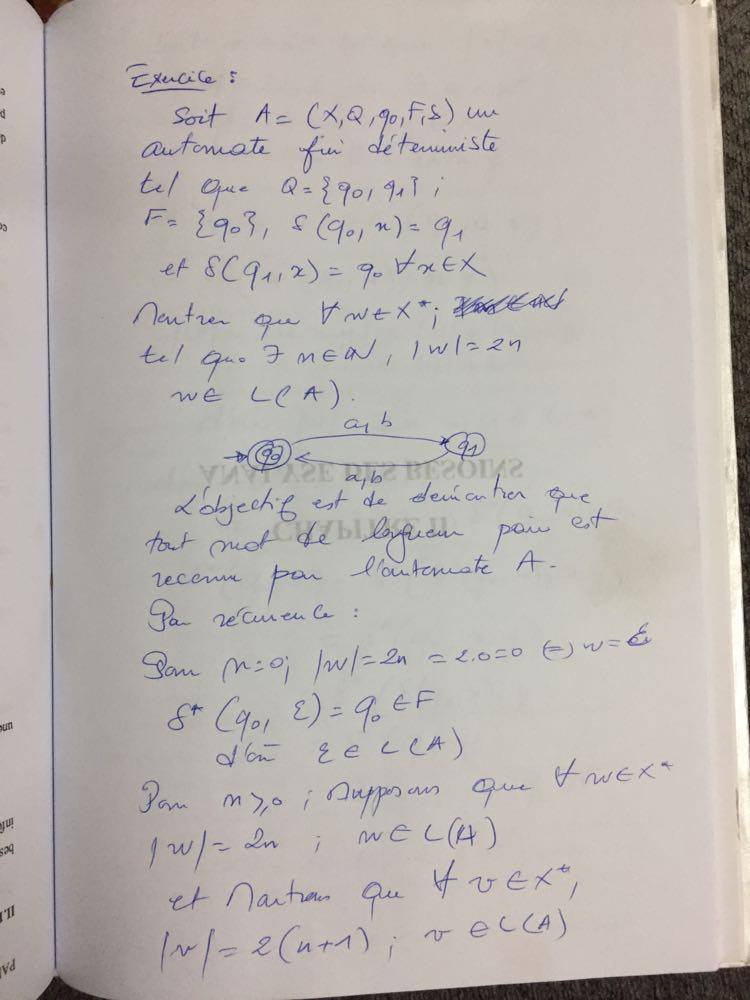 Exercice :
Soit A = (X, Q, q0, F, δ) un
automate fini déterministe
tel que Q = {q0, q1} ;
F = {q0}, δ(q0, x) = q1
et δ(q1, x) = q0 ∀x∈X
Montrer que ∀ w ∈ X* ;
tel que ∃ n ∈ ℕ, |w| = 2n
w ∈ L(A).
a, b
q0 q1
a, b
L'objectif est de démontrer que
tout mot de longueur pair est
reconnu par l'automate A.
Par récurrence :
Pour n=0; |w| = 2n = 2.0 = 0 ⇔ w = ε
δ* (q0, ε) = q0 ∈ F
d'où ε ∈ L(A)
Pour n ≥ 0 ; supposons que ∀ w ∈ X*
|w| = 2n ; w ∈ L(A)
et Montrons que ∀ v ∈ X*,
|v| = 2(n+1) ; v ∈ L(A)
ANALYSE DES BESOINS
CHAPITRE II